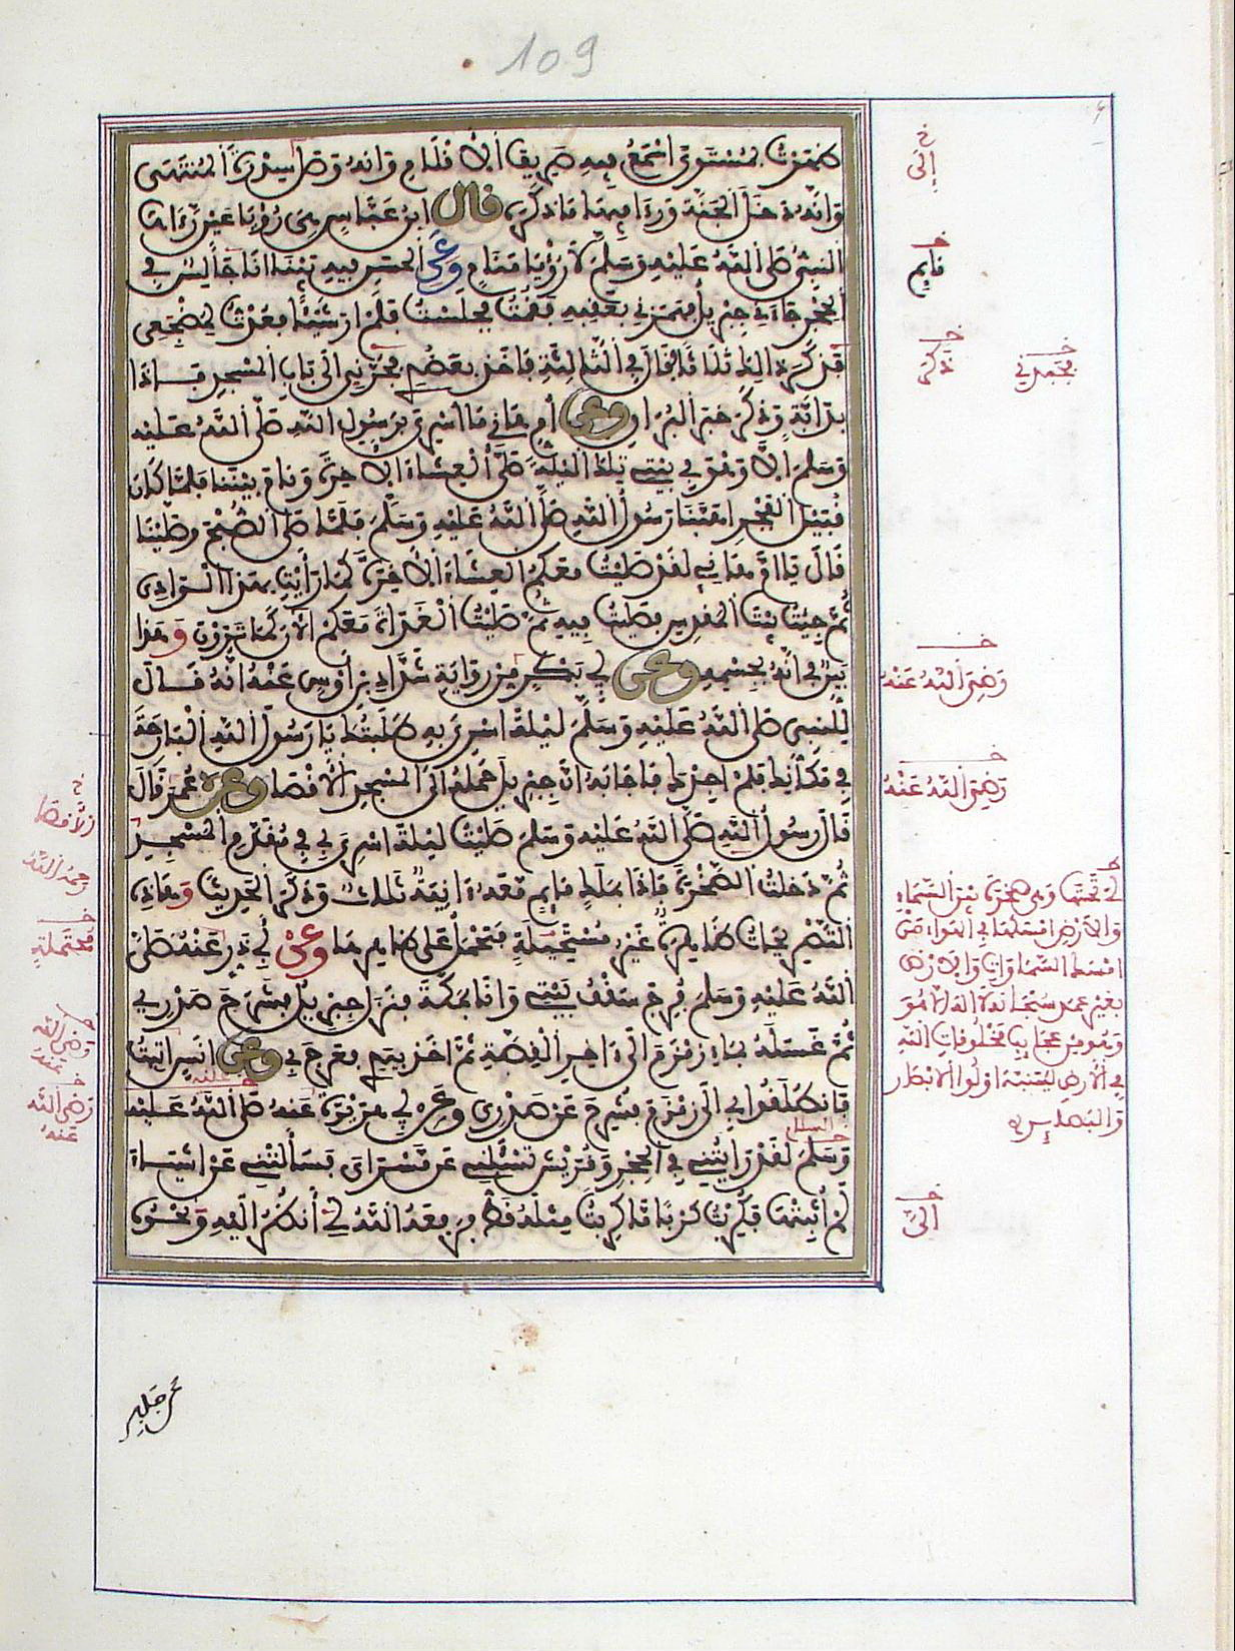 109
ظهرت لمستوى اسمع فيه صريف الاقلام وانه وصل سدرة المنتهى
وانه دخل الجنة ورءا فيها ما ذكره قال ابن عباس هي رؤيا عين رءاها
النبي صلى الله عليه وسلم لا رؤيا منام وعن الحسن فيه بيننا انا جالس في
الحجر جاءني جبريل فهمزني بعقبه فقمت فجلست فلم ار شيئا فعدت لمضجعي
فذكر ذلك ثلاثا فقال في الثالثة فاخذ بعضدي فجرني الى باب المسجد فاذا
بدابة وذكر خبر البراق وعن ام هاني ما اسري برسول الله صلى الله عليه
وسلم الا وهو في بيتي تلك الليلة صلى العشاء الاخرة ونام بيننا فلما كان
قبيل الفجر اهبنا رسول الله صلى الله عليه وسلم فلما صلى الصبح وصلينا
قال يا ام هاني لقد صليت معكم العشاء الاخرة كما رأيت بهذا الوادي
ثم جيت بيت المقدس فصليت فيه ثم صليت الغداة معكم الان كما ترون وهذا
بين في انه بجسمه وعن ابي بكر من رواية شداد بن أوس عنه انه قال
للنبي صلى الله عليه وسلم ليلة اسري به طلبتك يا رسول الله البارحة
في مكانك فلم اجدك فاجابه ان جبريل حمله الى المسجد الاقصا وعن عمر قال
قال رسول الله صلى الله عليه وسلم صليت ليلة اسري بي في مقدم المسجد
ثم دخلت الصخرة فاذا بملك قايم معه ءانية ثلاث وذكر الحديث وهاذه
التصريحات ظاهرة غير مستحيلة فتحمل على ظاهرها وعن ابي ذر عنه صلى
الله عليه وسلم فرج سقف بيتي وانا بمكة فنزل جبريل فشرح صدري
ثم غسله بماء زمزم الى ءاخر القصة ثم اخذ بيدي فعرج بي وعن انس اتيت
فانطلقوا بي الى زمزم فشرح عن صدري وعن ابي هريرة عنه صلى الله عليه
وسلم لقد رايتني في الحجر وقريش تسئلني عن مسراي فسألتني عن اشياء
لم أثبتها فكربت كربا ما كربت مثله قط فرفعه الله لي أنظر اليه ونحوه
عن جابر
خ
إلى
خ
قايم
خ
ذكر
خ
فجبذني
خ
رضي الله عنه
خ
رضي الله عنه
ط
والارض
بغير عمد سبحانه لا اله الا هو
وهو من عجايب مخلوفات الله
في الارض ليتنبه اولوا الابصار
والبصاير
خ
الى
خ
الاقصا
رحمه الله
خ
خ
رضي الله
عنه
خ
رضي الله
عنه